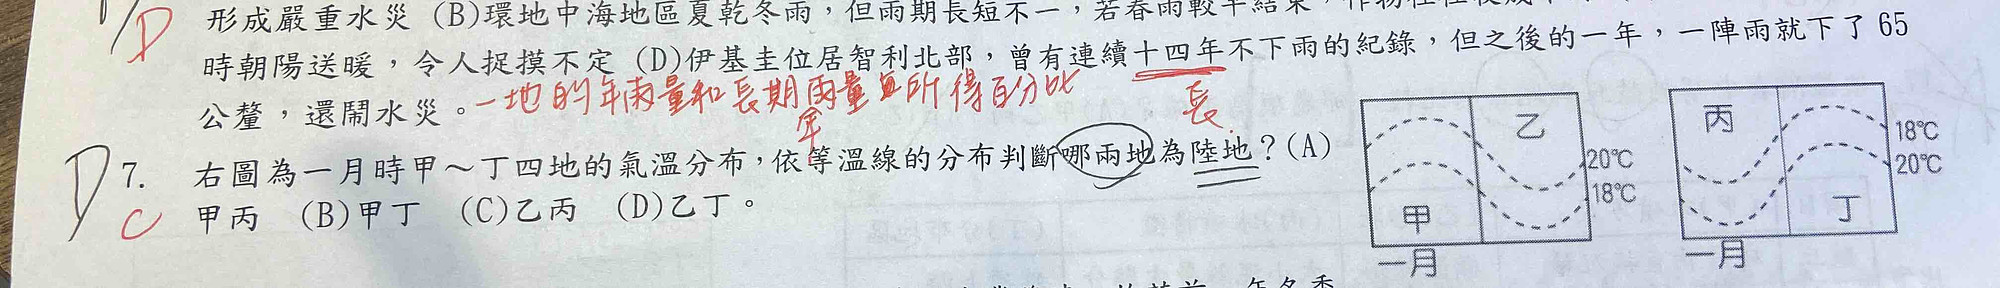 形成嚴重水災 (B)環地中海地區夏乾冬雨，但雨期長短不一，若春雨較早結束，作物往往收成
D
時朝陽送暖，令人捉摸不定 (D)伊基圭位居智利北部，曾有連續十四年不下雨的紀錄，但之後的一年，一陣雨就下了65
公釐，還鬧水災。一地的年雨量和長期雨量 所得百分比
年
長
D 7. 右圖為一月時甲～丁四地的氣溫分布，依等溫線的分布判斷哪兩地為陸地？(A)
C 甲丙 (B)甲丁 (C)乙丙 (D)乙丁。
乙
20℃
18℃
甲
一月
丙
18℃
20℃
丁
一月